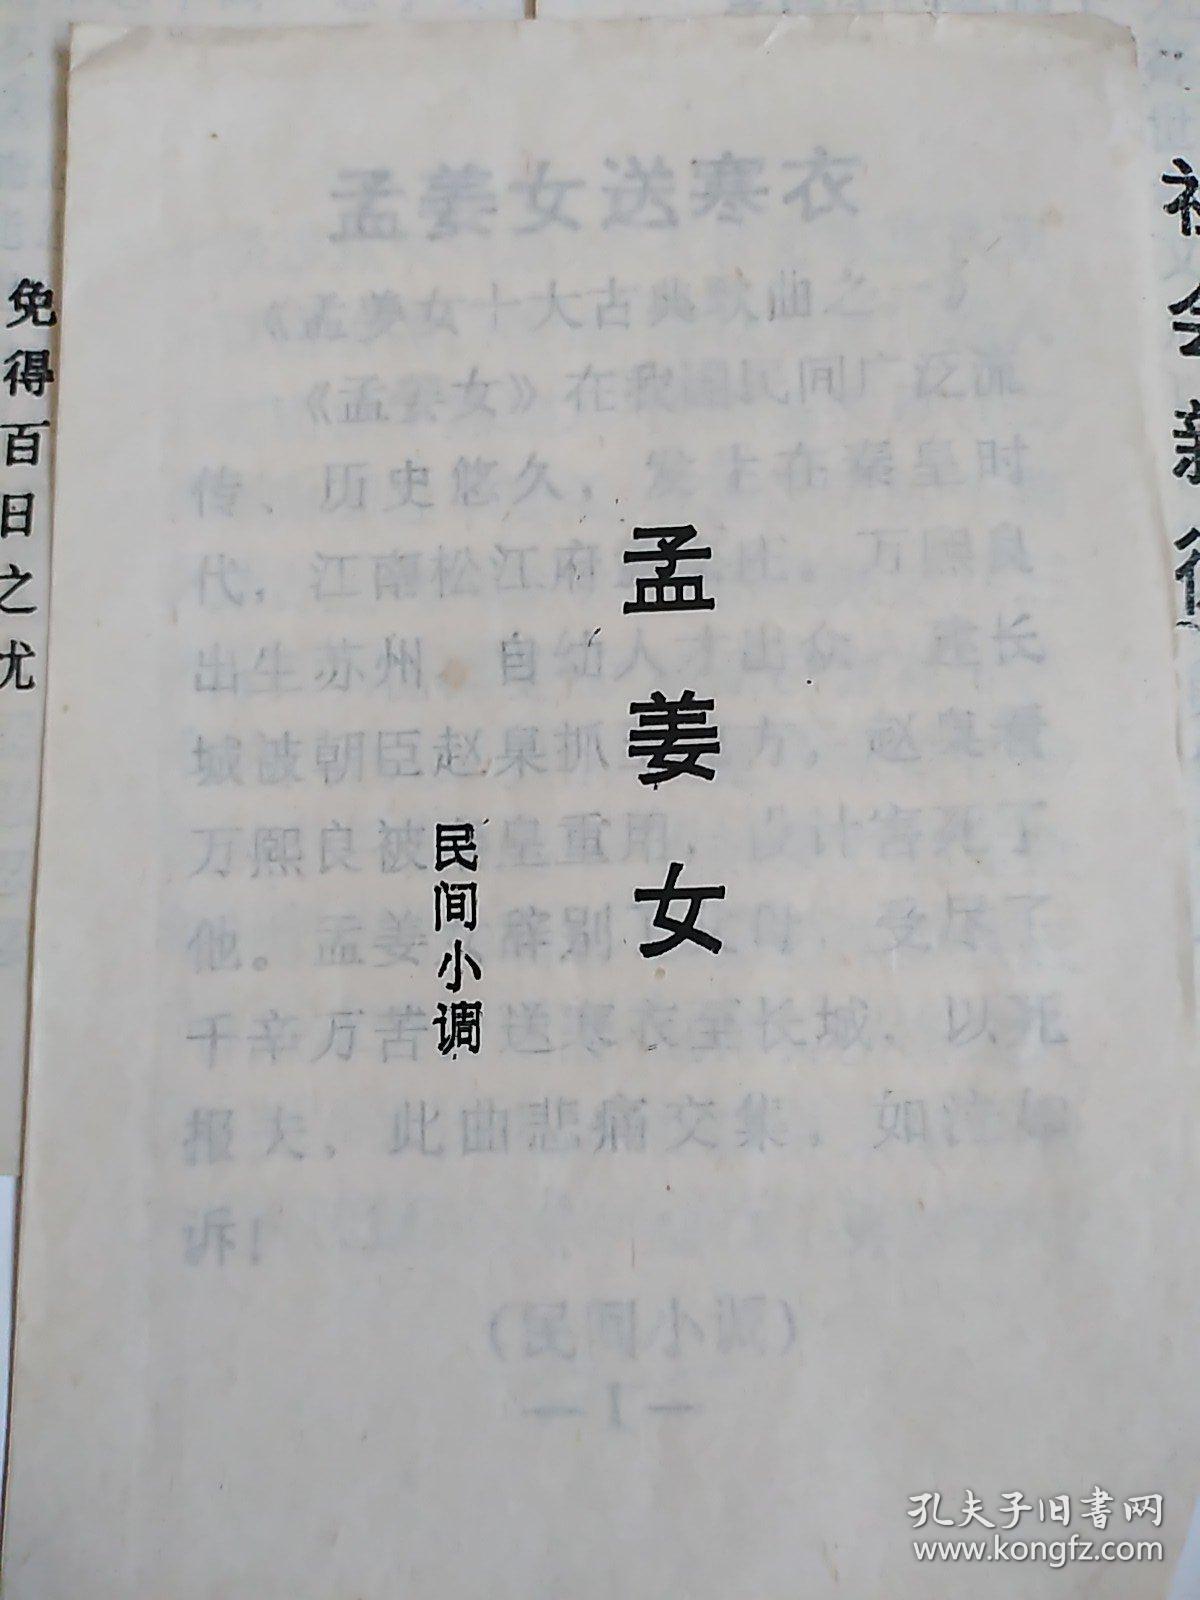 孟姜女
民间小调
孟姜女送寒衣
《孟姜女十大古典歌曲之一》
《孟姜女》在我国民间广泛流
传、历史悠久，发生在秦皇时
代，江南松江府
庄。万熙良
出生苏州。自幼人才出众
建长
城被朝臣赵臬抓
方，赵臬看
万熙良被
皇重用，设计害死了
他。孟姜
辞别
父母，受尽了
千辛万苦
送寒衣至长城，以死
报夫，此曲悲痛交集，如泣如
诉！
（民间小调）
—1—
免得百日之尤
社会新
孔夫子旧书网
www.kongfz.com